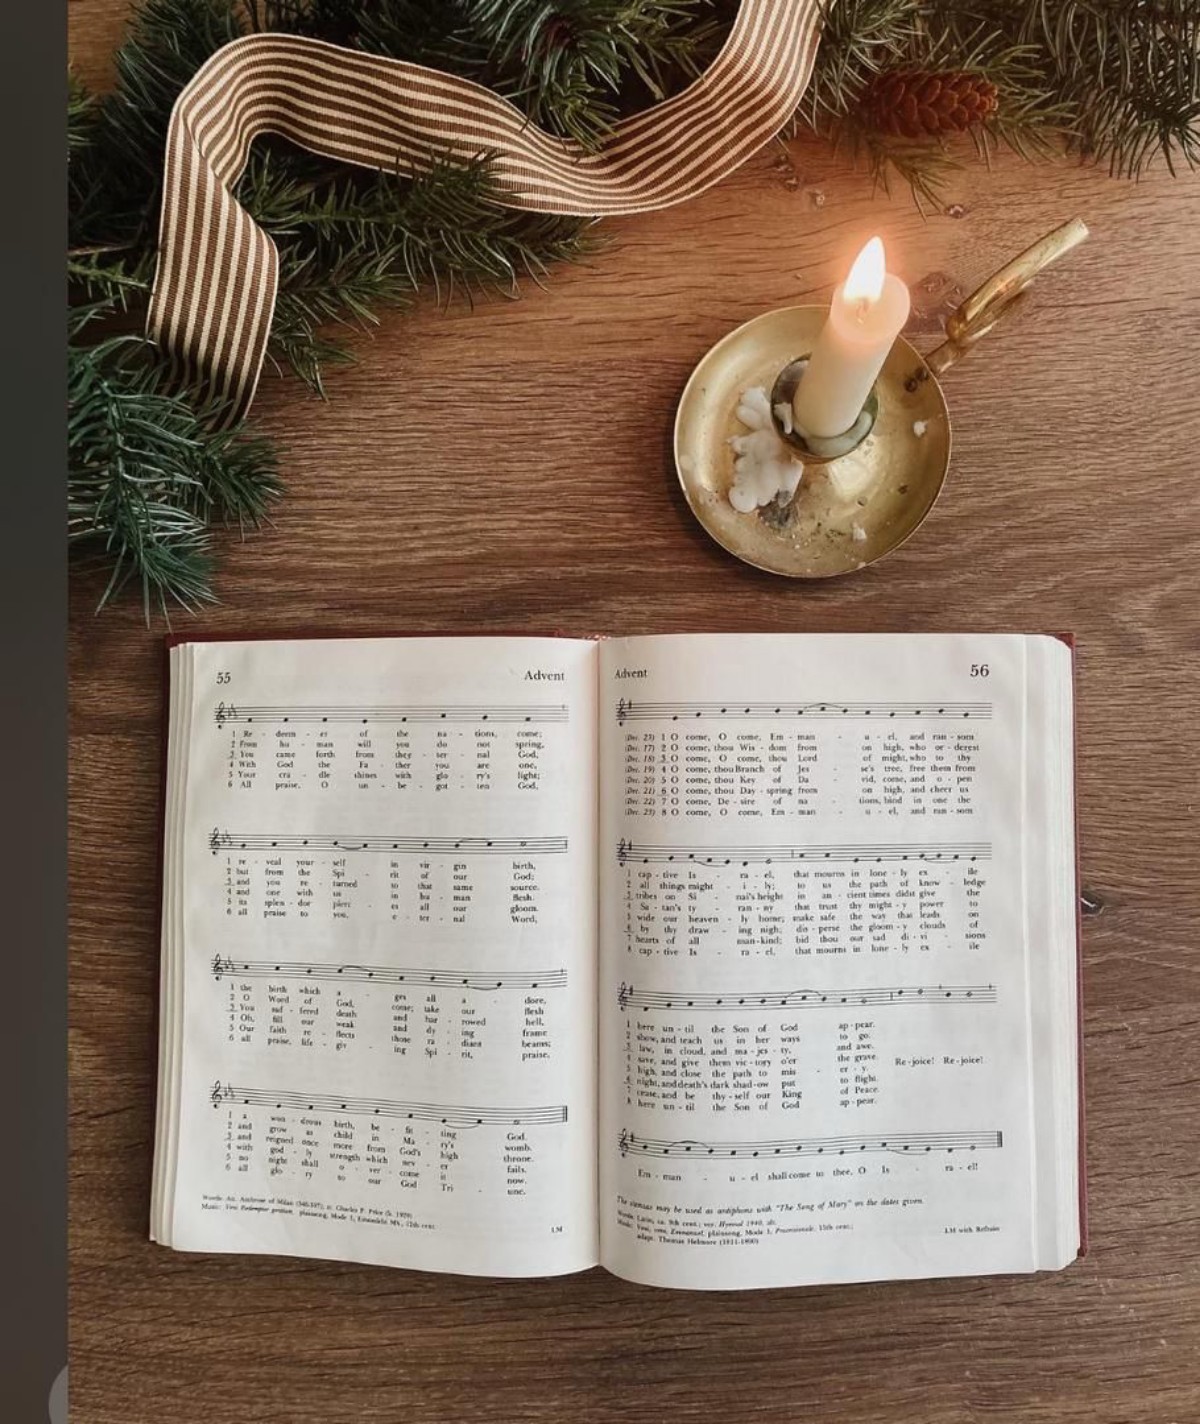 55 Advent
1 Re - deem - er of the na - tions, come;
2 From hu - man will you do not spring,
3 You came forth from thee - ter - nal God,
4 With God the Fa - ther you are one,
5 Your cra - dle shines with glo - ry's light;
6 All praise, O un - be - got - ten God,
1 re - veal your - self in vir - gin birth,
2 but from the Spi - rit of our God;
3 and you re - turned to that same source.
4 and one with us in hu - man flesh.
5 its splen - dor pierc - es all our gloom.
6 all praise to you, e - ter - nal Word,
1 the birth which a - ges all a - dore,
2 O Word of God, come; take our flesh
3 You suf - fered death and har - rowed hell,
4 Oh, fill our weak and dy - ing frame
5 Our faith re - flects those ra - diant beams;
6 all praise, life - giv - ing Spi - rit, praise,
1 a won - drous birth, be - fit - ting God.
2 and grow as child in Ma - ry's womb.
3 and reigned once more from God's high throne.
4 with god - ly strength which nev - er fails.
5 no night shall o - ver - come it now.
6 all glo - ry to our God Tri - une.
Words: Att. Ambrose of Milan (340-397); tr. Charles P. Price (b. 1920)
Music: Veni Redemptor gentium, plainsong, Mode 1, Einsiedeln MS., 12th cent. LM
Advent 56
(Dec. 23) 1 O come, O come, Em - man - u - el, and ran - som
(Dec. 17) 2 O come, thou Wis - dom from on high, who or - derest
(Dec. 18) 3 O come, O come, thou Lord of might, who to thy
(Dec. 19) 4 O come, thou Branch of Jes - se's tree, free them from
(Dec. 20) 5 O come, thou Key of Da - vid, come, and o - pen
(Dec. 21) 6 O come, thou Day - spring from on high, and cheer us
(Dec. 22) 7 O come, De - sire of na - tions, bind in one the
(Dec. 23) 8 O come, O come, Em - man - u - el, and ran - som
1 cap - tive Is - ra - el, that mourns in lone - ly ex - ile
2 all things might - i - ly; to us the path of know - ledge
3 tribes on Si - nai's height in an - cient times didst give the
4 Sa - tan's ty - ran - ny that trust thy might - y power to
5 wide our heaven - ly home; make safe the way that leads on
6 by thy draw - ing nigh; dis - perse the gloom - y clouds of
7 hearts of all man - kind; bid thou our sad di - vi - sions
8 cap - tive Is - ra - el, that mourns in lone - ly ex - ile
1 here un - til the Son of God ap - pear.
2 show, and teach us in her ways to go.
3 law, in cloud, and ma - jes - ty, and awe.
4 save, and give them vic - tory o'er the grave. Re - joice! Re - joice!
5 high, and close the path to mis - er - y.
6 night, and death's dark shad - ow put to flight.
7 cease, and be thy - self our King of Peace.
8 here un - til the Son of God ap - pear.
Em - man - u - el shall come to thee, O Is - ra - el!
The stanzas may be used as antiphons with "The Song of Mary" on the dates given.
Words: Latin, ca. 9th cent.; ver. Hymnal 1940, alt.
Music: Veni, veni, Emmanuel, plainsong, Mode 1, Processionale, 15th cent.; LM with Refrain
adapt. Thomas Helmore (1811-1890)